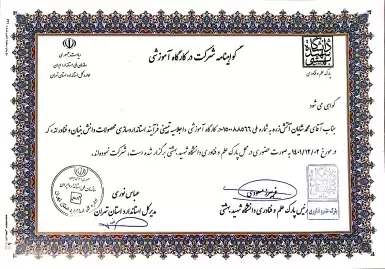 گواهینامه شرکت در کارگاه آموزشی
ریاست جمهوری
سازمان ملی استاندارد ایران
اداره کل استاندارد استان تهران
دانشگاه شهید بهشتی
پارک علم و فناوری
گواهی می شود
جناب آقای محمد شایان آتش زره به شماره ملی ۰۱۵۰۰۸۸۵۶۶ در کارگاه آموزشی فرآیند استانداردسازی محصولات دانش بنیان و فناورانه، که
در مورخ ۱۴۰۱/۱۲/۰۲ به صورت حضوری در محل پارک علم و فناوری دانشگاه شهید بهشتی برگزار شده است، شرکت نموده اند.
عباس نوری
مدیرکل استاندارد استان تهران
رئیس پارک علم و فناوری دانشگاه شهید بهشتی
پارک علم و فناوری